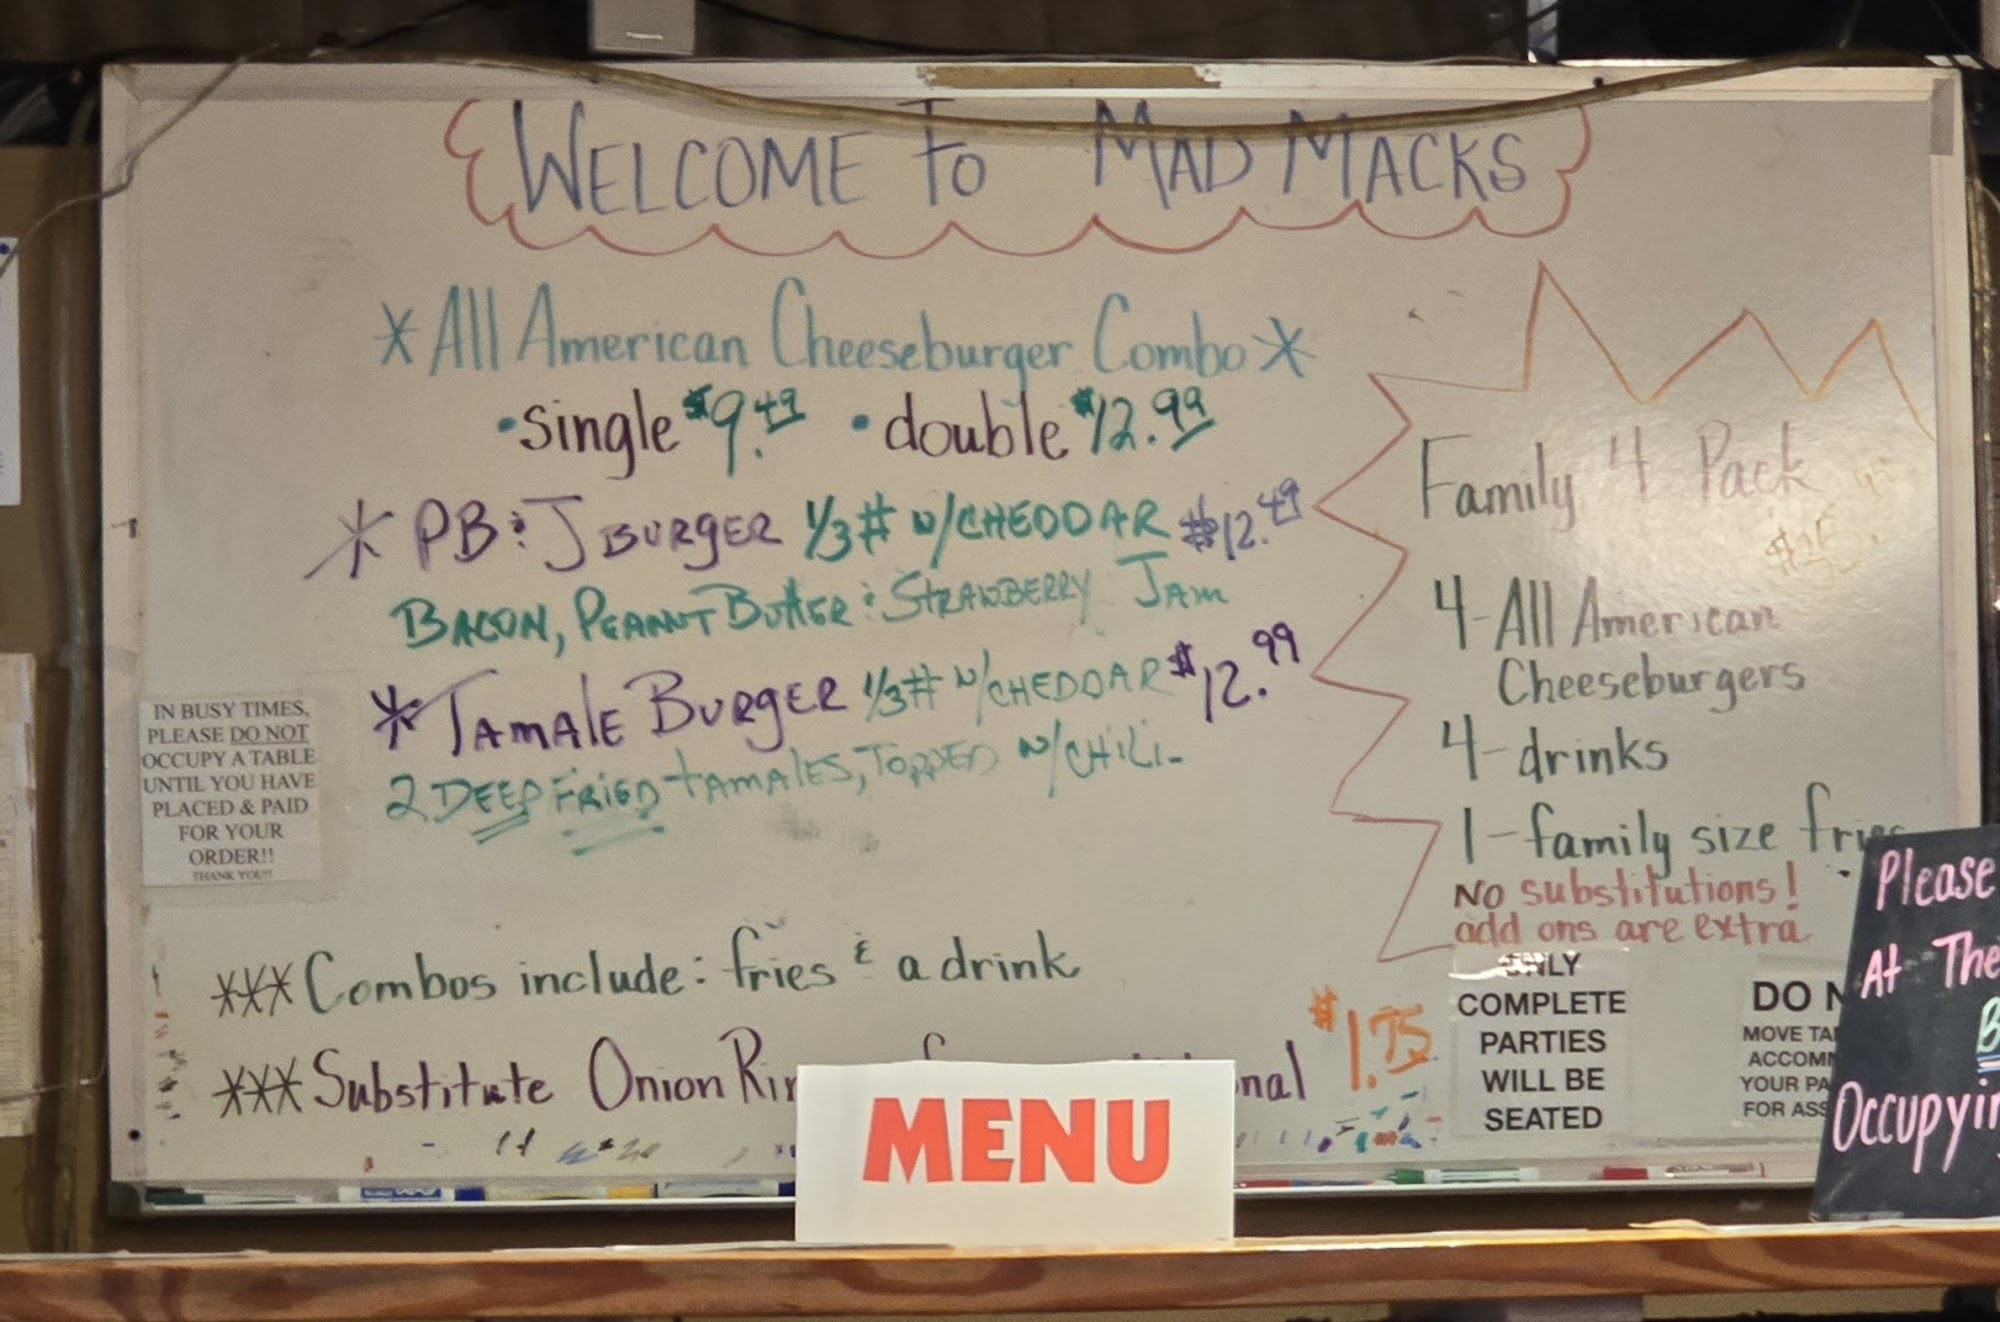 WELCOME to MAD MACKS
*All American Cheeseburger Combo*
•single $9.49 •double $12.99
* PB & J BURGER 1/3# w/CHEDDAR $12.49
BACON, PEANUT BUTTER & STRAWBERRY JAM
* TAMALE BURGER 1/3# w/CHEDDAR $12.99
2 DEEP FRIED tAMALES, TOPPED w/CHILI-
***Combos include: fries & a drink
***Substitute Onion $1.75
Family 4 Pack
4-All American
Cheeseburgers
4-drinks
1-family size fries
No substitutions!
add ons are extra
IN BUSY TIMES,
PLEASE DO NOT
OCCUPY A TABLE
UNTIL YOU HAVE
PLACED & PAID
FOR YOUR
ORDER!!
THANK YOU!!
ONLY
COMPLETE
PARTIES
WILL BE
SEATED
DO
MOVE
YOUR
FOR
Please
At The
MENU